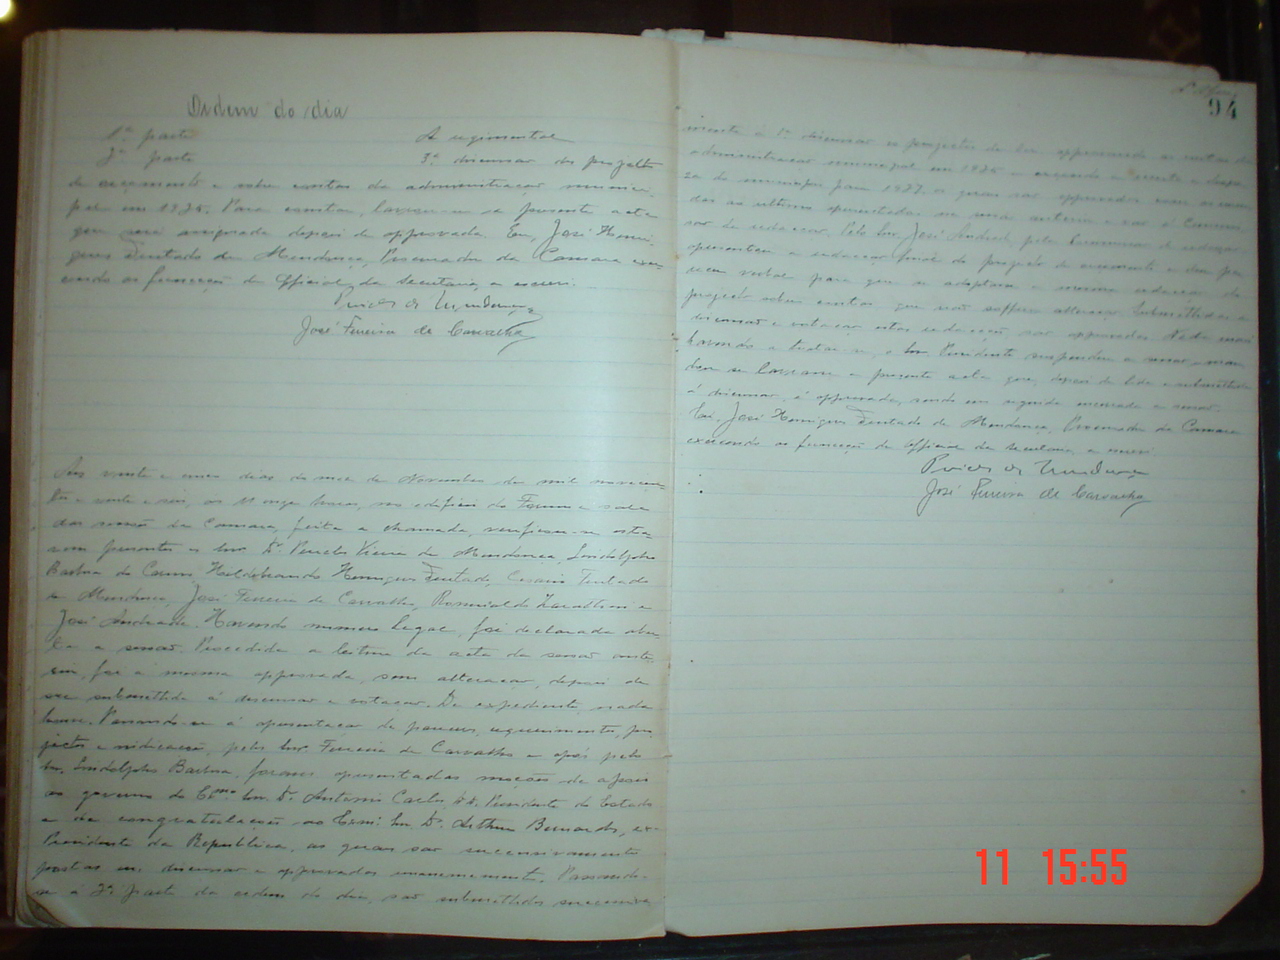 Ordem do dia
1ª parte A regimental
2ª parte 3ª discussão dos projectos
de orçamento e sobre contas da administração munici-
pal em 1925. Para constar, lavrou-se a presente acta
que será assignada depois de approvada. Eu, José Henri-
ques Furtado de Mendonça, Procurador da Camara exer-
cendo as funcções de Official da Secretaria, a escrevi.
José Ferreira de Carvalho
Aos vinte e dias do mez de Novembro de mil novecen-
tos e vinte e seis, as 11 onze horas, no edificio do Forum e sala
das sessões da Camara, feita a chamada, verificou-se esta-
rem presentes os Snr. Dr. Pericles Vieira de Mendonça, Lindolpho
Barbosa do Carmo, Hildebrando Henriques Furtado, Cesario Furtado
de Mendonça, José Ferreira de Carvalho, Romualdo e
José Andrade. Havendo numero legal, foi declarada aber-
ta a sessão. Procedida a leitura da acta da sessão ante-
rior, foi a mesma approvada, sem alteração, depois de
ser submettida á discussão e votação. De expediente, nada
houve. Passando-se á apresentação de pareceres, requerimentos, pro-
jectos e indicações, pelo Snr. Ferreira de Carvalho e após pelo
Snr. Lindolpho Barbosa, foram apresentadas moções de apoio
ao governo do Exmo. Snr. Dr. Antonio Carlos, DD. Presidente do Estado
e de congratulações ao Exmo. Snr. Dr. Arthur Bernardes, ex-
Presidente da Republica, as quaes são successivamente
postas em discussão e approvadas unanimemente. Passando-
se á 2ª parte da ordem do dia, são submettidos successiva
94
mente á discussão os projectos de lei approvando as contas da
administração municipal em 1925 e orçando a receita e despe-
za do municipio para 1927. os quaes são approvados
das as ultimas apresentadas na sessão anterior e vae á Commis-
são de redacção. Pelo Snr. José Andrade, pela Commissão de redacção
apresentou a redacção final do projecto de orçamento e deu pa-
recer verbal para que se adoptasse a mesma redacção do
projecto sobre contas que não soffreu alteração. Submettidas a
discussão e votação estas redacções são approvadas. Nada mais
havendo a tratar-se, o Snr. Presidente suspendeu a sessão, man-
dou se lavrasse a presente acta que, depois de lida e submettida
á discussão, é approvada, sendo em seguida encerrada a sessão.
Eu, José Henriques Furtado de Mendonça, Procurador da Camara
exercendo as funcções de official da secretaria a escrevi
José Ferreira de Carvalho
11 15:55